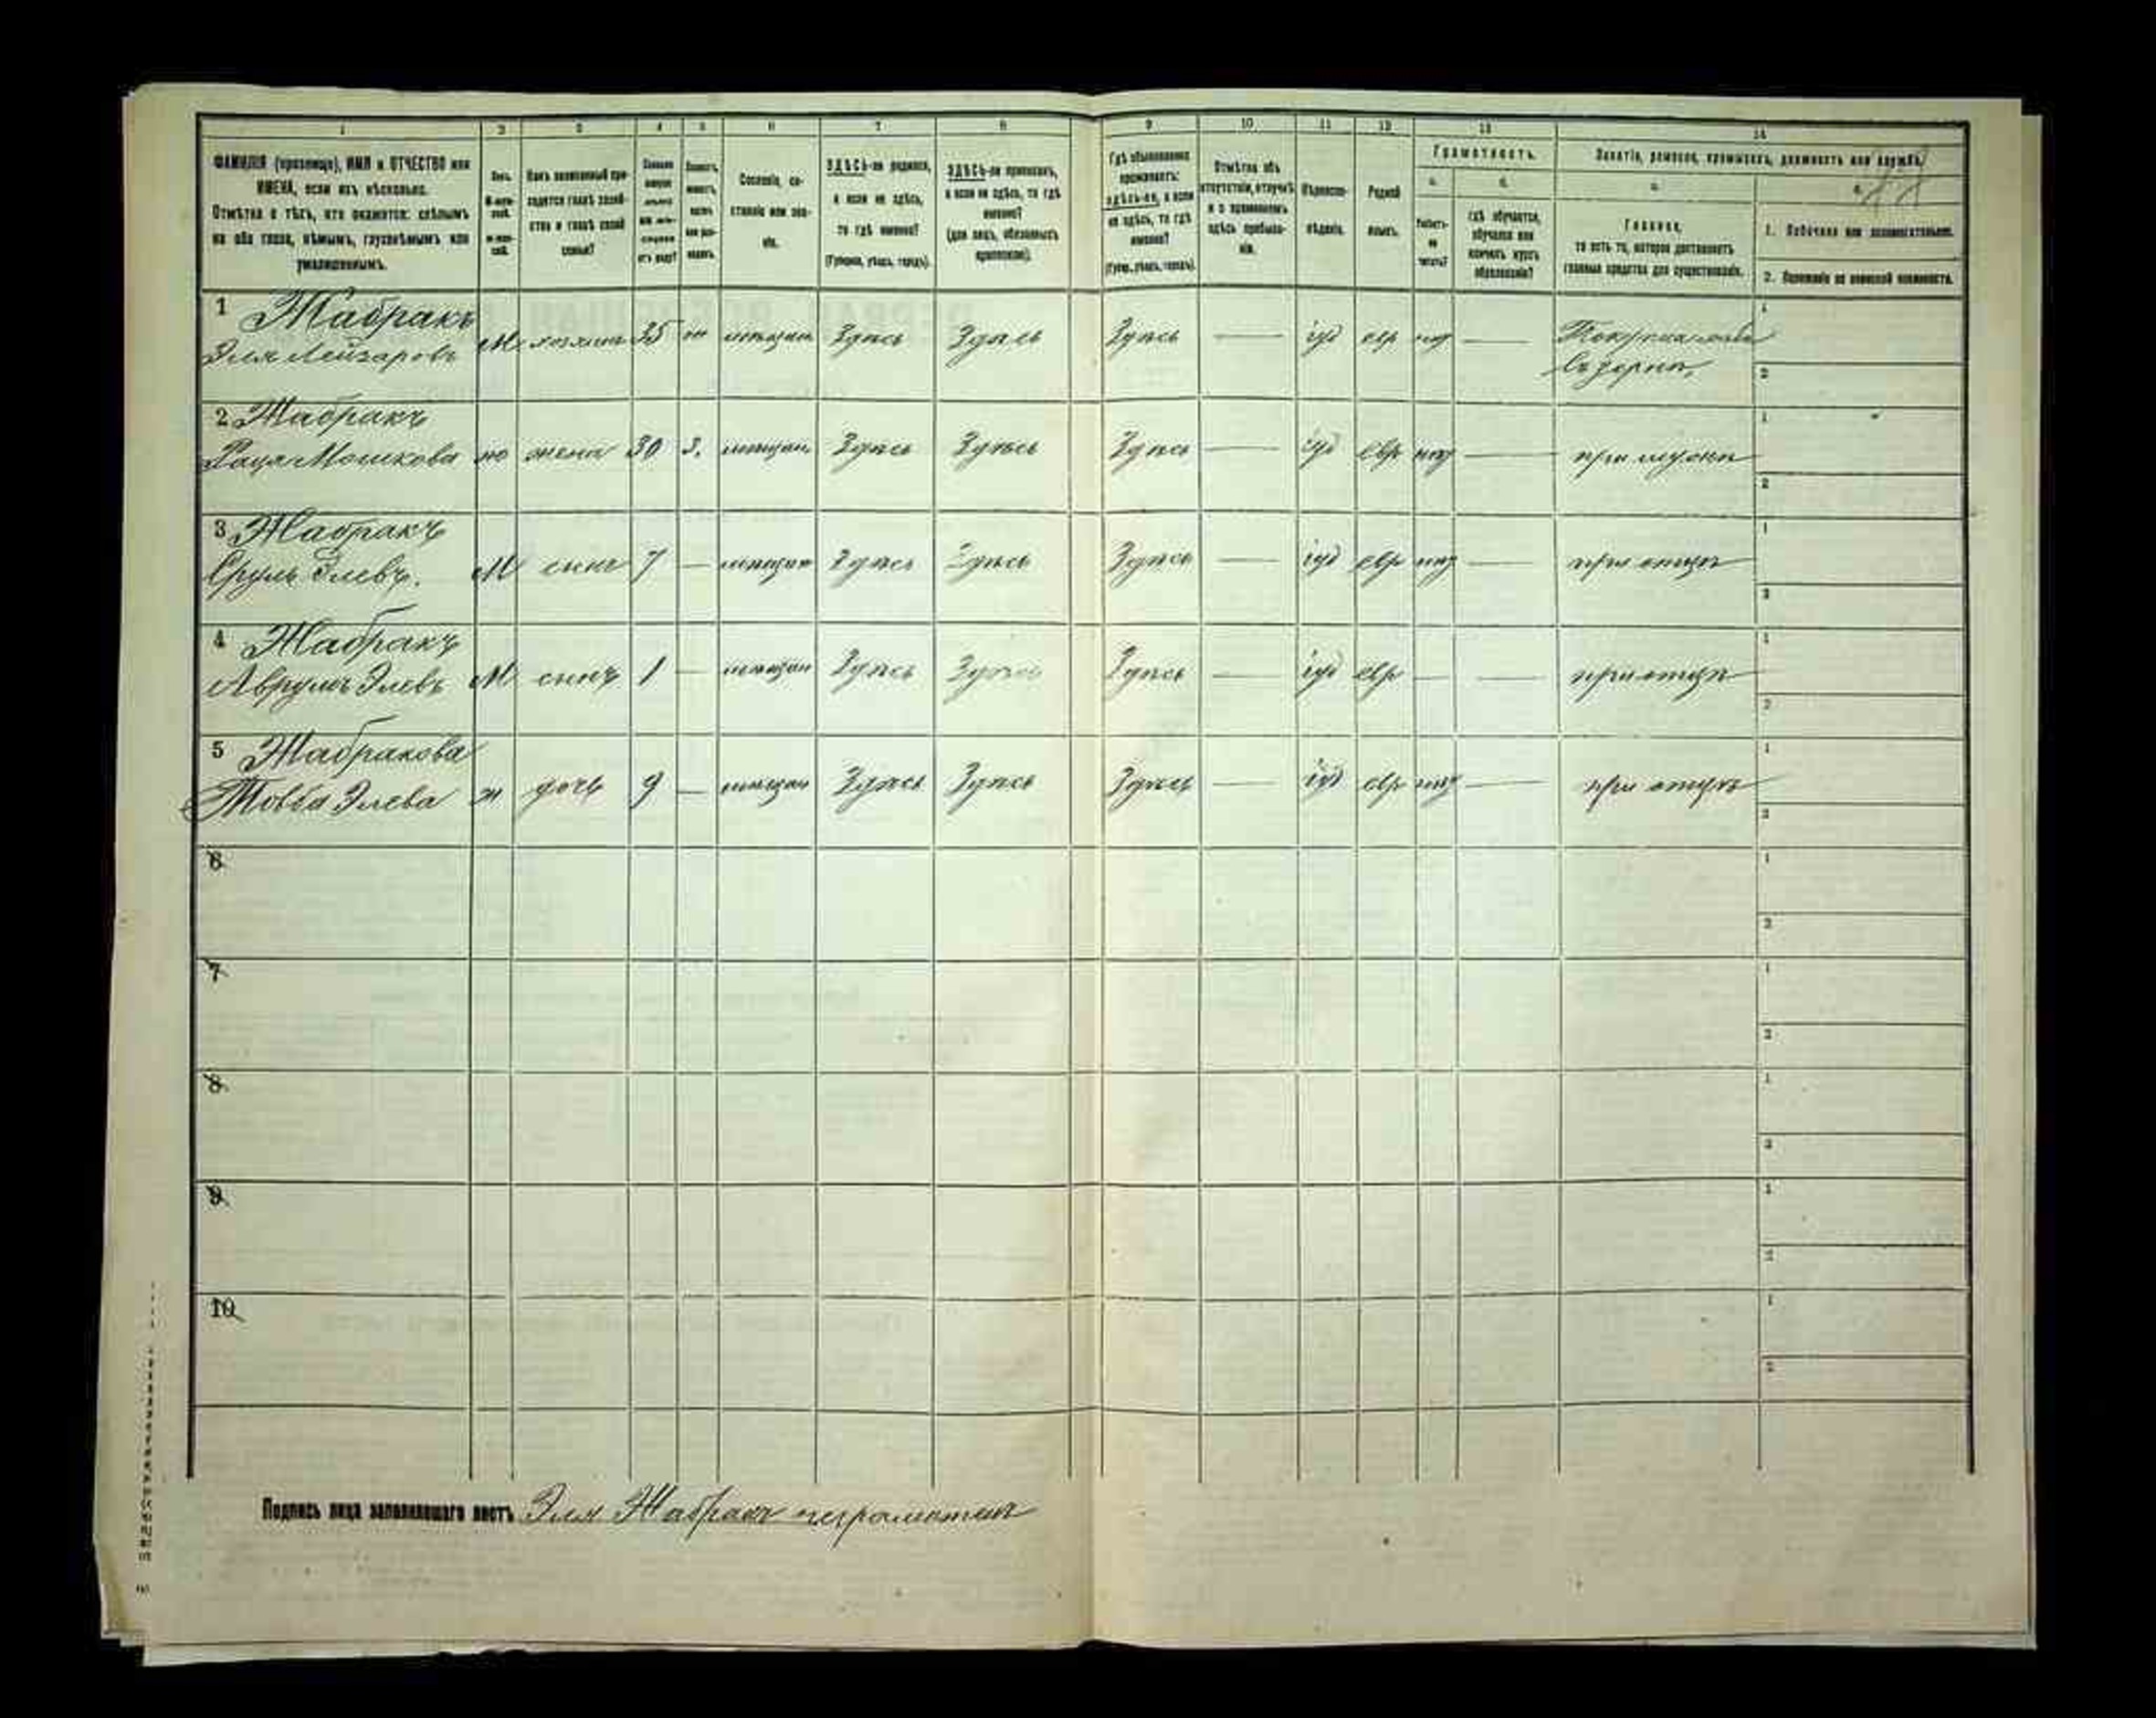 1 2 3 4 5 6 7 8 9 10 11 12 13 14
ФАМИЛІЯ (прозвище), ИМЯ и ОТЧЕСТВО или
ИМЕНА, если ихъ нѣсколько.
Отмѣтка о тѣхъ, кто окажется: слѣпымъ
на оба глаза, нѣмымъ, глухонѣмымъ или
умалишеннымъ.
Полъ.
М-муж-
ской.
Ж-жен-
ский.
Какъ записанный при-
ходится главѣ хозяй-
ства и главѣ своей
семьи?
Сословіе, со-
стояніе или зва-
ніе.
ЗДѢСЬ-ли родился,
а если не здѣсь,
то гдѣ именно?
(Губернія, уѣздъ, городъ).
ЗДѢСЬ-ли приписанъ,
а если не здѣсь, то гдѣ
именно?
(для лицъ, обязанныхъ
припискою).
Гдѣ обыкновенно
проживаетъ:
здѣсь-ли, а если
не здѣсь, то гдѣ
именно?
(Губер., уѣздъ, городъ).
Отмѣтка объ
отсутствіи, отлучкѣ
и о временномъ
здѣсь пребыва-
ніи.
Вѣроиспо-
вѣданіе.
Родной
языкъ.
Грамотность.
а. б.
Умѣетъ-
ли
читать?
гдѣ обучается,
обучался или
кончилъ курсъ
образованія?
Занятіе, ремесло, промыселъ, должность или служба.
а. б.
Главное,
то есть то, которое доставляетъ
главныя средства для существованія.
1. Побочное или вспомогательное.
2. Положеніе по воинской повинности.
1 Жабракъ
Эля Лейзаровъ М хозяинъ 35 ж мѣщан Здѣсь Здѣсь Здѣсь — іуд евр нѣт — въ зорнѣ, 1 2
2 Жабракъ
Мошкова ж жена 30 з. мѣщан Здѣсь Здѣсь Здѣсь — іуд евр нѣт — при мужѣ 1 2
3 Жабракъ
Сруль Элевъ. М сынъ 7 — мѣщан Здѣсь Здѣсь Здѣсь — іуд евр нѣт — при отцѣ 1 2
4 Жабракъ
Аврумъ Элевъ М сынъ 1 — мѣщан Здѣсь Здѣсь Здѣсь — іуд евр — — при отцѣ 1 2
5 Жабракова
Товба Элева ж дочь 9 — мѣщан Здѣсь Здѣсь Здѣсь — іуд евр нѣт — при отцѣ 1 2
6 1 2
7 1 2
8 1 2
9 1 2
10 1 2
Подпись лица заполнившаго листъ Эля Жабракъ неграмотенъ